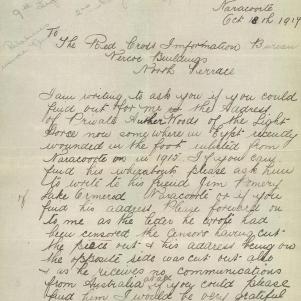 Naracoorte
Oct 18th 1917
To
The Red Cross Information Bureau
Verco Buildings
North Terrace
I am writing to ask you if you could
find out for me is the Address
of Private Woods of the Light
Horse now somewhere in Egypt recently
wounded in the foot enlisted from
Naracoorte on in 1915. If you can
find his whereabouts please ask him
to write to his friend Jim
Naracoorte or if you
find his address Please forward it on
to me as the letter he wrote had
been censored the censors having cut
the piece out & his address being on
the opposite side was cut out also
& as he receives no communications
from Australia if you could please
find him I would be very grateful